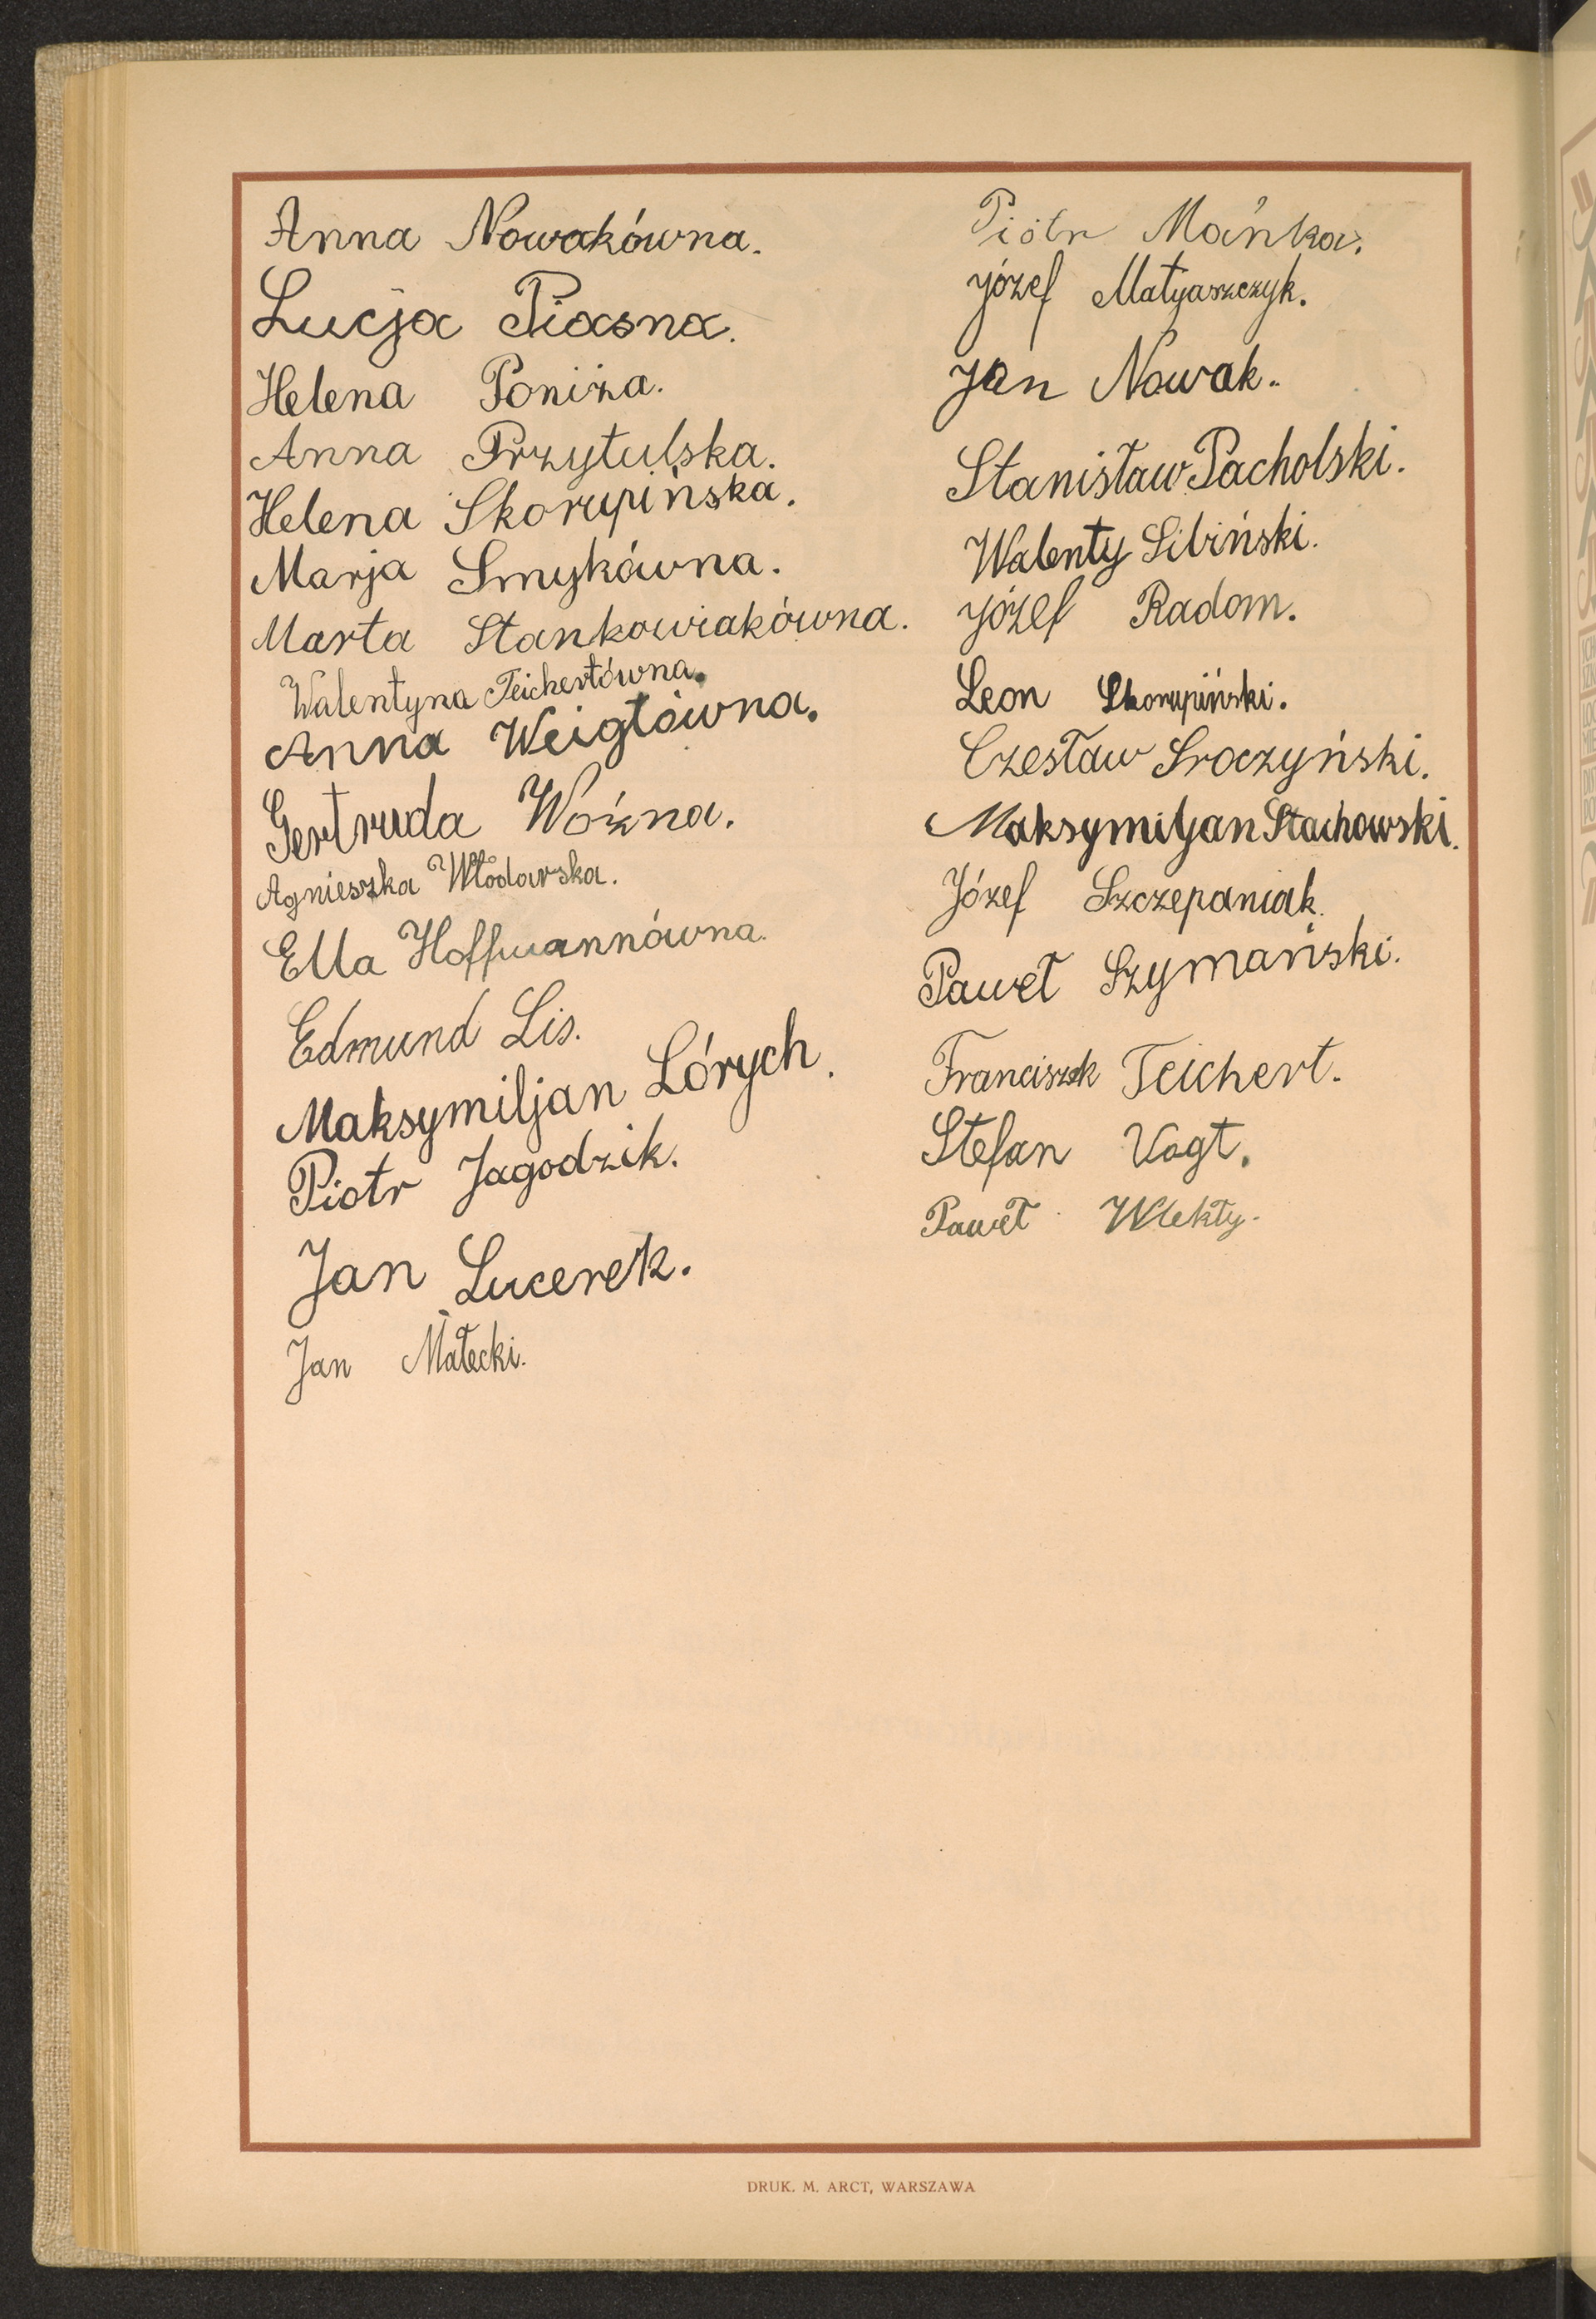 Anna Nowakówna.
Lucja Piasna.
Helena Poniża.
Anna Przytulska.
Helena Skorupińska.
Marja Smykówna.
Marta Stankowiakówna.
Walentyna Teichertówna.
Anna Weigtówna.
Gertruda Woźna.
Agnieszka Włodarska.
Ella Hoffmannówna.
Edmund Lis.
Maksymiljan Lórych.
Piotr Jagodzik.
Jan Lucerek.
Jan Małecki.
Piotr Mańka.
Józef Matyaszczyk.
Jan Nowak.
Stanisław Pacholski.
Walenty Libiński.
Józef Radom.
Leon Skorupiński.
Czesław Sroczyński.
Maksymiljan Stachowski.
Józef Szczepaniak.
Paweł Szymański.
Franciszek Teichert.
Stefan Vogt.
Paweł Wlekty.
DRUK. M. ARCT, WARSZAWA